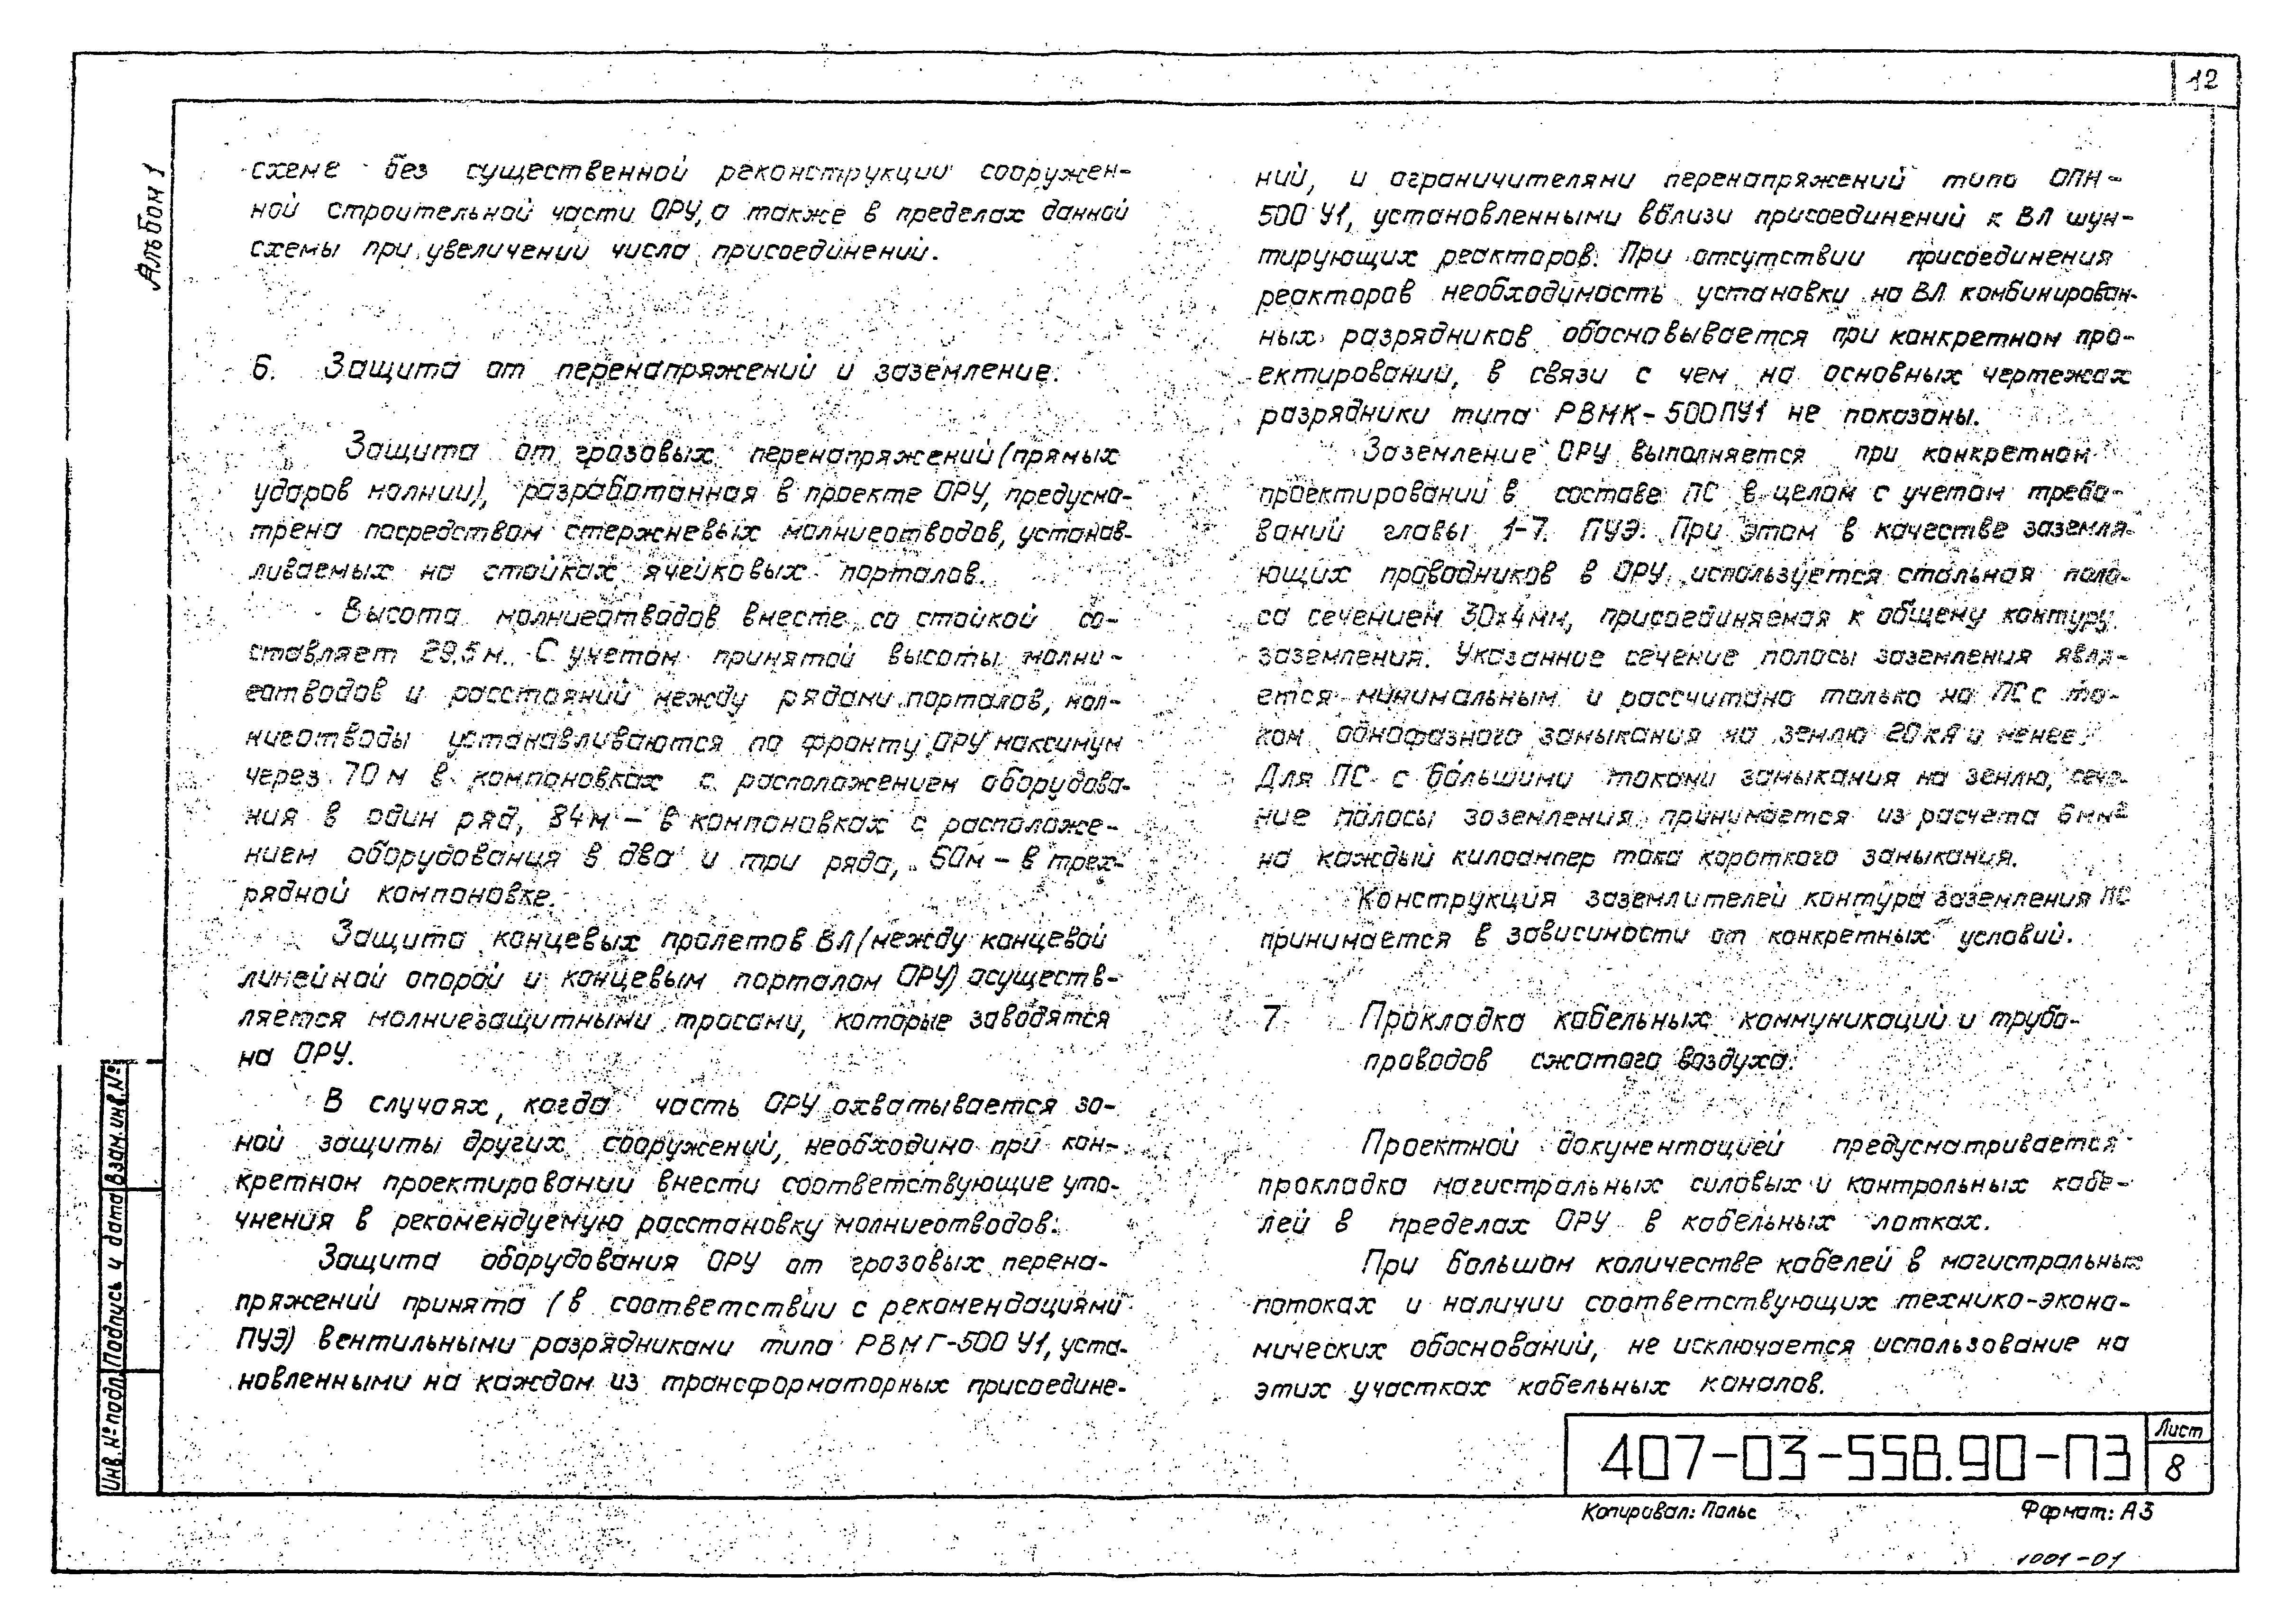 12
Альбом 1
схеме без существенной реконструкции сооружен-
ной строительной части ОРУ, а также в пределах данной
схемы при увеличений числа присоединений.
6. Защита от перенапряжений и заземление.
Защита от грозовых перенапряжений (прямых
ударов молнии), разработанная в проекте ОРУ, предусмо-
трена посредством стержневых молниеотводов, устанав-
ливаемых на стойках ячейковых порталов.
Высота молниеотводов вместе со стойкой со-
ставляет 29.5 м. С учетом принятой высоты молни-
еотводов и расстояний между рядами порталов, мол-
ниеотводы устанавливаются по фронту ОРУ максимум
через 70 м в компоновках с расположением оборудова-
ния в один ряд, 84 м - в компоновках с расположе-
нием оборудования в два и три ряда, 60м - в трех-
рядной компоновке.
Защита концевых пролетов ВЛ (между концевой
линейной опорой и концевым порталом ОРУ) осуществ-
ляется молниезащитными тросами, которые заводятся
на ОРУ.
В случаях, когда часть ОРУ охватывается зо-
ной защиты других сооружений, необходимо при кон-
кретном проектировании внести соответствующие уто-
чнения в рекомендуемую расстановку молниеотводов.
Защита оборудования ОРУ от грозовых перена-
пряжений принята (в соответствии с рекомендациями
ПУЭ) вентильными разрядниками типа РВМГ-500 У1, уста-
новленными на каждом из трансформаторных присоедине-
ний, и ограничителями перенапряжений типа ОПН-
500 У1, установленными вблизи присоединений к ВЛ шун-
тирующих реакторов. При отсутствии присоединения
реакторов необходимость установки на ВЛ комбинирован-
ных разрядников обосновывается при конкретном про-
ектировании, в связи с чем на основных чертежах
разрядники типа РВМК-500ПУ1 не показаны.
Заземление ОРУ выполняется при конкретном
проектировании в составе ПС в целом с учетом требо-
ваний главы 1-7. ПУЭ. При этом в качестве заземля-
ющих проводников в ОРУ используется стальная поло-
са сечением 30х4мм, присоединяемая к общему контуру
заземления. Указанное сечение полосы заземления явля-
ется минимальным и рассчитано только на ПС с то-
ком однофазного замыкания на землю 20 кА и менее.
Для ПС с бо́льшими токами замыкания на землю, сече-
ние полосы заземления принимается из расчета 6 мм²
на каждый килоампер тока короткого замыкания.
Конструкция заземлителей контура заземления ПС
принимается в зависимости от конкретных условий.
7. Прокладка кабельных коммуникаций и трубо-
проводов сжатого воздуха.
Проектной документацией предусматривается
прокладка магистральных силовых и контрольных кабе-
лей в пределах ОРУ в кабельных лотках.
При большом количестве кабелей в магистральных
потоках и наличии соответствующих технико-эконо-
мических обоснований, не исключается использование на
этих участках кабельных каналов.
Инв. № подл. Подпись и дата Взам. инв. №
407-03-558.90-ПЗ
Лист
8
Копировал: Пальс
Формат: А3
1001-01